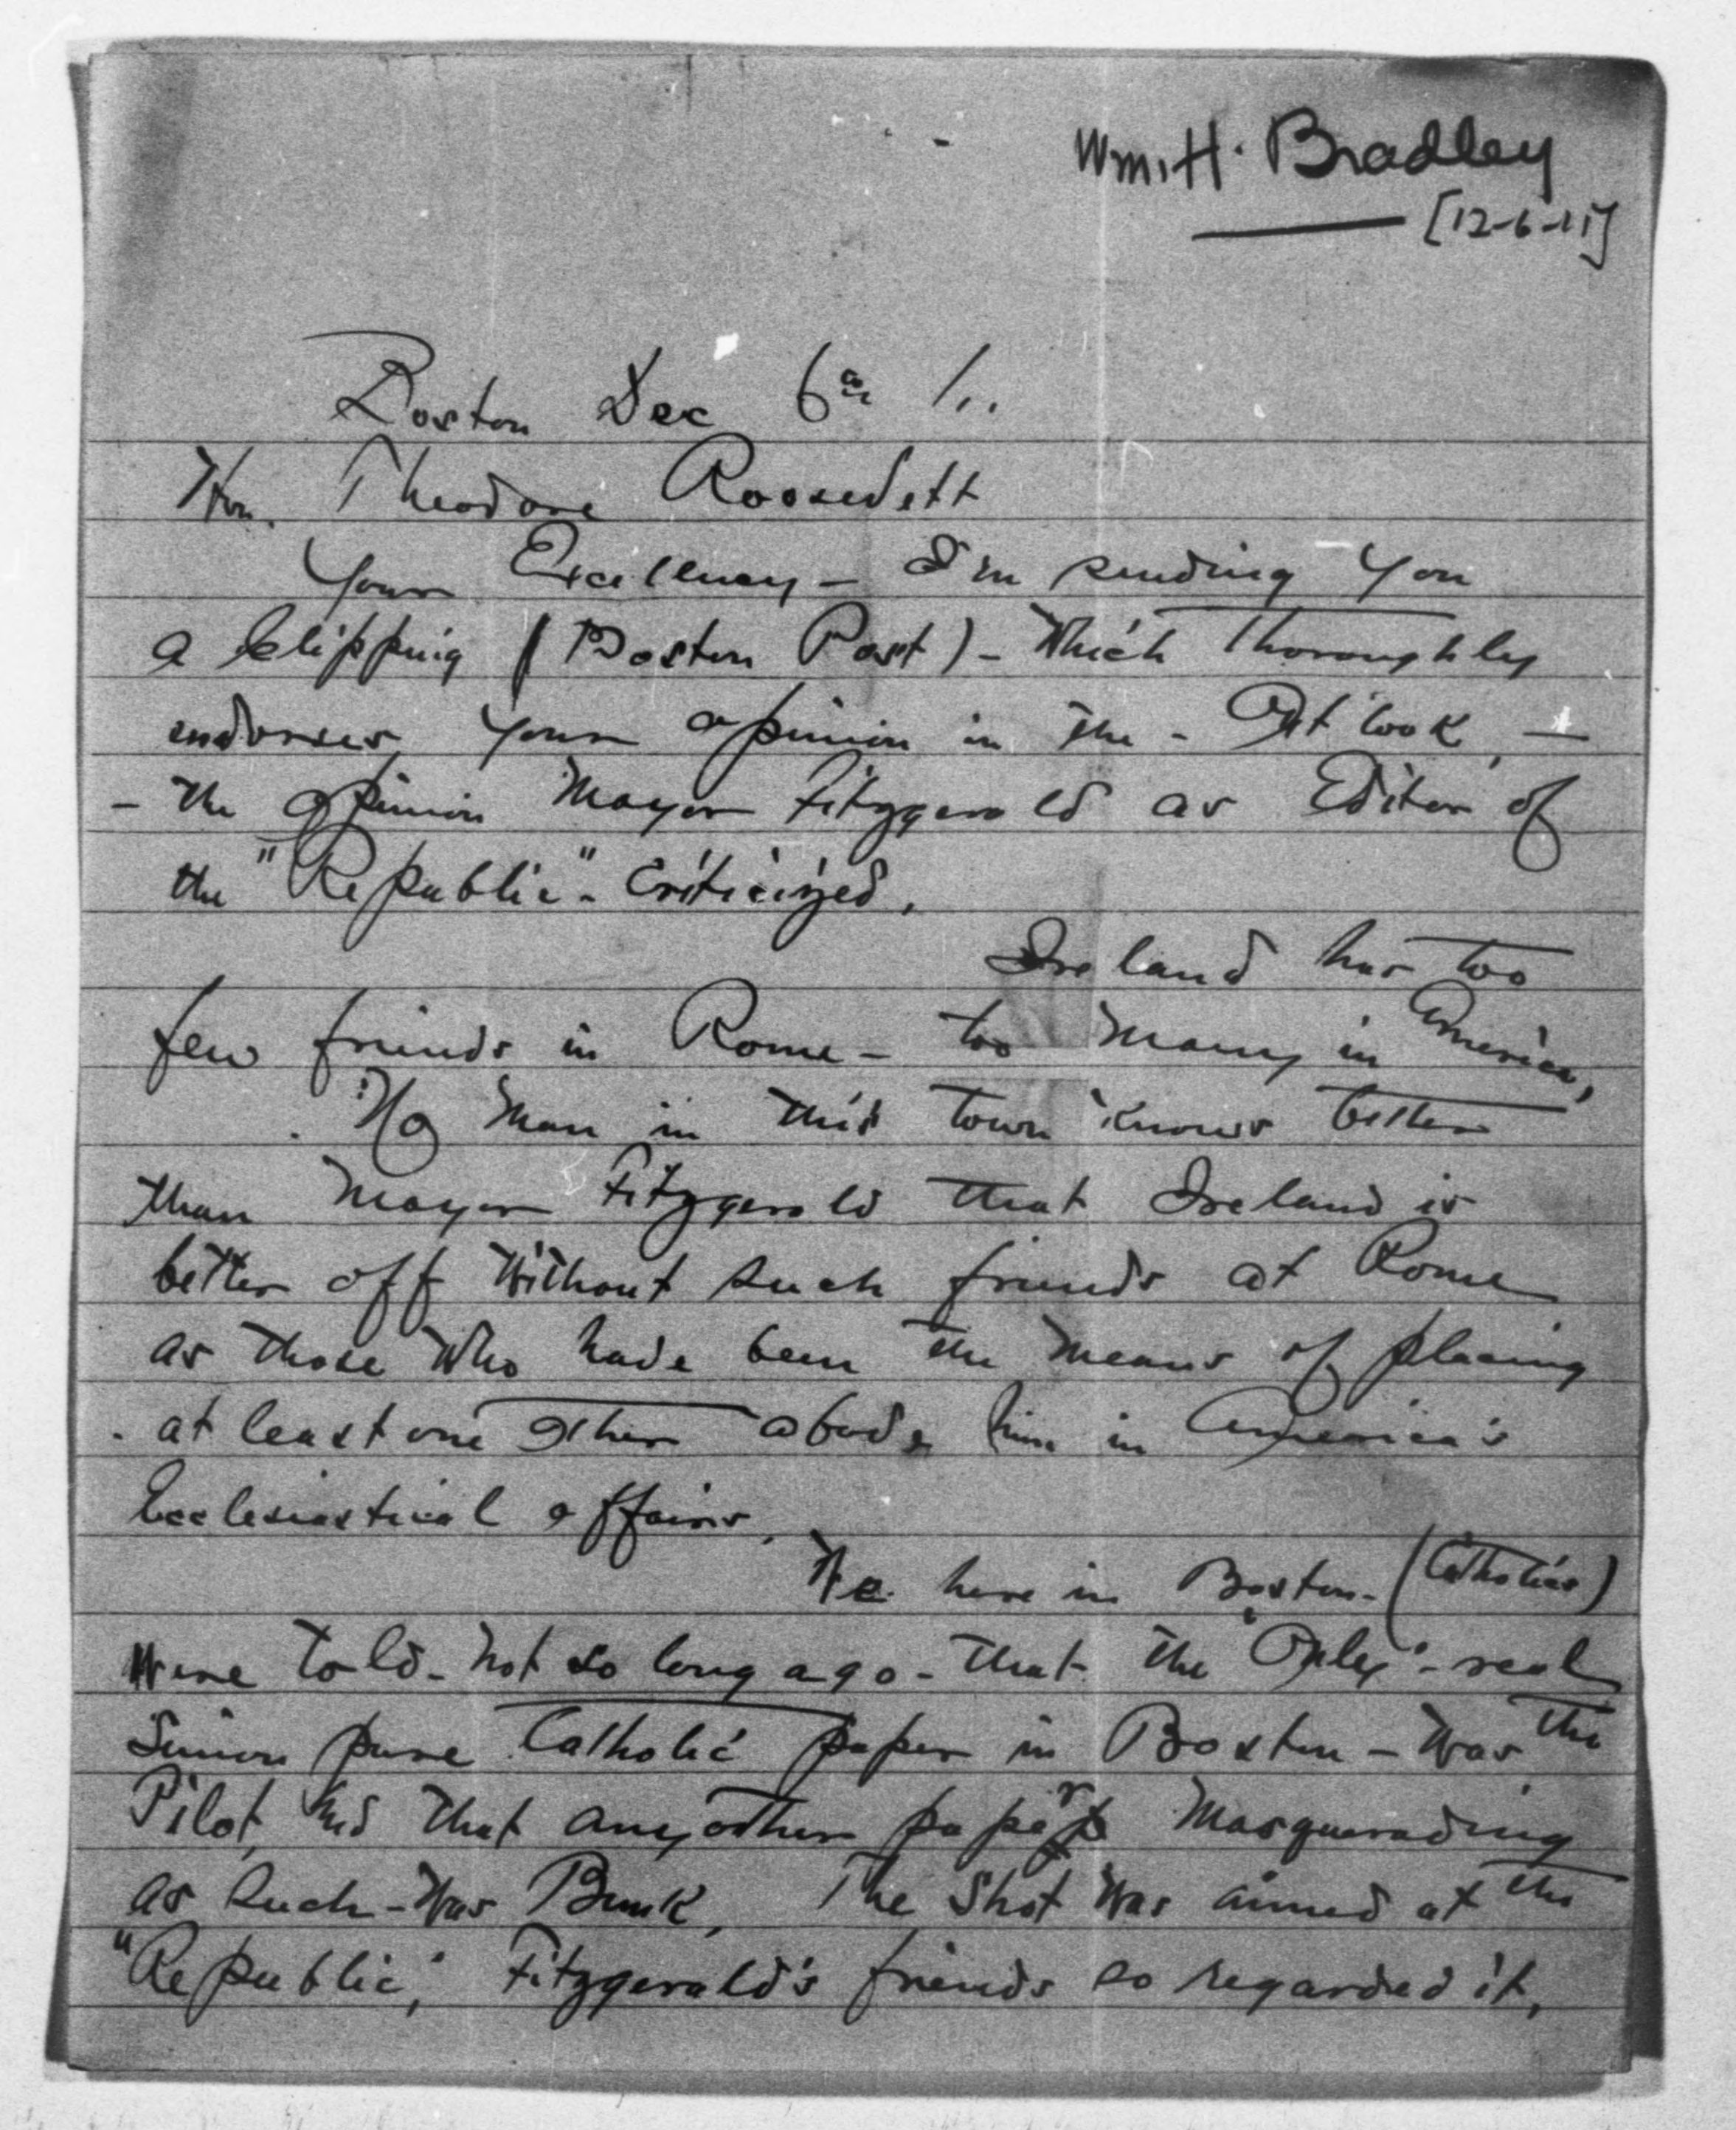 Wm. H. Bradley
[12-6-11]
Boston Dec 6th 11.
Hon. Theodore Roosevelt
Your Excellency - I'm sending you
a clipping (Boston Post) - Which Thoroughly
endorses your opinion in the - Outlook, -
- the opinion Mayor Fitzgerald as Editor of
the "Republic" - Criticized.
Ireland has too
few friends in Rome - too many in America,
No man in this town knows better
than Mayor Fitzgerald that Ireland is
better off Without such friends at Rome
as those Who have been the means of placing
at least one other above him in America's
Ecclesiastical affairs.
We here in Boston - (Catholics)
Were told - not so long ago - that the "Only" - real
Simon pure Catholic paper in Boston - Was the
Pilot, And that any other paper Masquerading
as such - Was Bunk, The Shot Was aimed at the
"Republic," Fitzgerald's friends so regarded it,